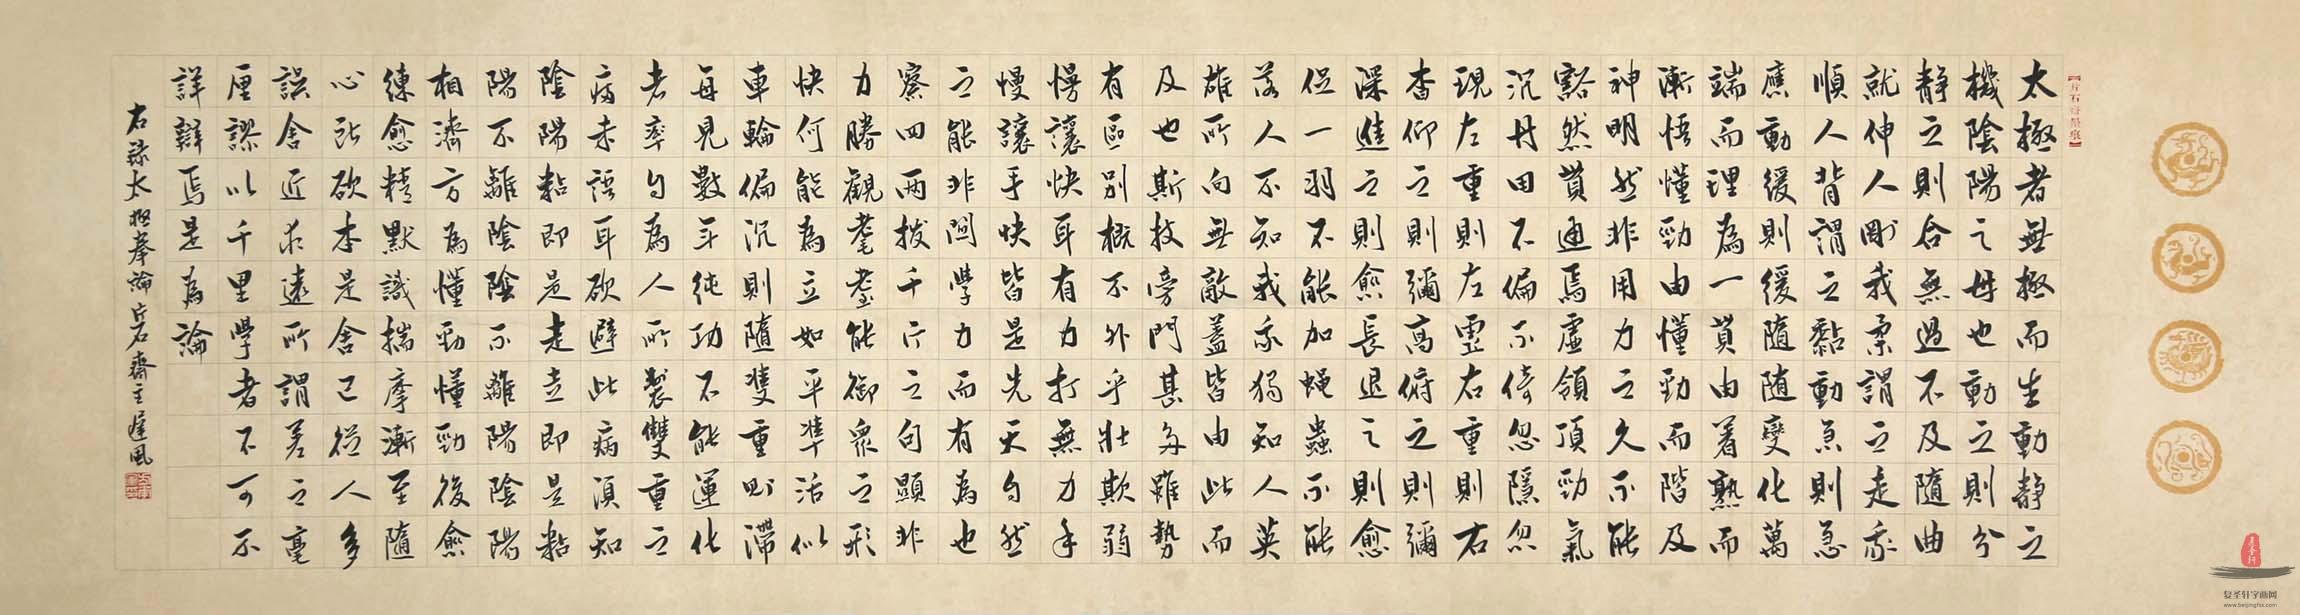 太極者無極而生動靜之
機陰陽之母也動之則分
靜之則合無過不及隨曲
就伸人剛我柔謂之走我
順人背謂之黏動急則急
應動緩則緩隨隨變化萬
端而理為一貫由着熟而
漸悟懂勁由懂勁而階及
神明然非用力之久不能
豁然貫通焉虛領頂勁氣
沉丹田不偏不倚忽隱忽
現左重則左虛右重則右
杳仰之則彌高俯之則彌
深進之則愈長退之則愈
促一羽不能加蠅蟲不能
落人不知我我獨知人英
雄所向無敵蓋皆由此而
及也斯技旁門甚多雖勢
有區別概不外乎壯欺弱
慢讓快耳有力打無力手
慢讓手快皆是先天自然
之能非關學力而有為也
察四兩撥千斤之句顯非
力勝觀耄耋能御眾之形
快何能為立如平準活似
車輪偏沉則隨雙重則滯
每見數年純功不能運化
者率自為人所製雙重之
病未悟耳欲避此病須知
陰陽粘即是走走即是粘
陽不離陰陰不離陽陰陽
相濟方為懂勁懂勁後愈
練愈精默識揣摩漸至隨
心所欲本是舍己從人多
誤舍近求遠所謂差之毫
厘謬以千里學者不可不
詳辭焉是為論
右錄太極拳論片石齋主風
复圣轩字画网
www.beijingfsx.com